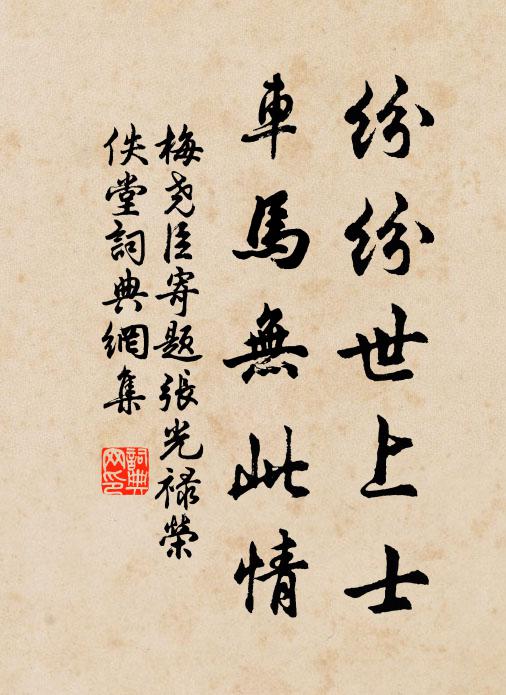 纷纷世上士
車馬無此情
梅尧臣寄题張光禄榮
佚堂詞典網集
詞典
网印